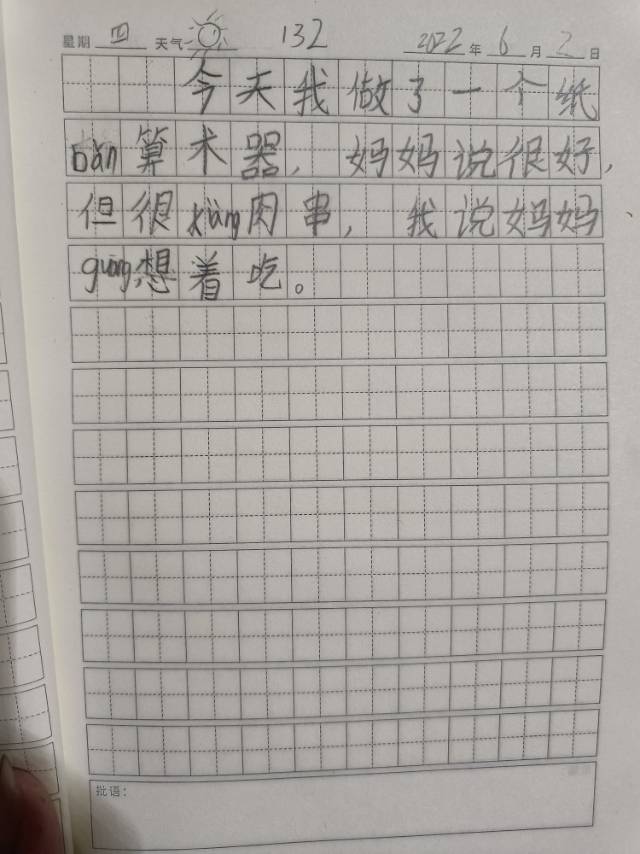 星期 四 天气 132 2022 年 6 月 2 日
今天我做了一个纸
bǎn算术器,妈妈说很好,
但很xiàng肉串,我说妈妈
guāng想着吃。
批语: